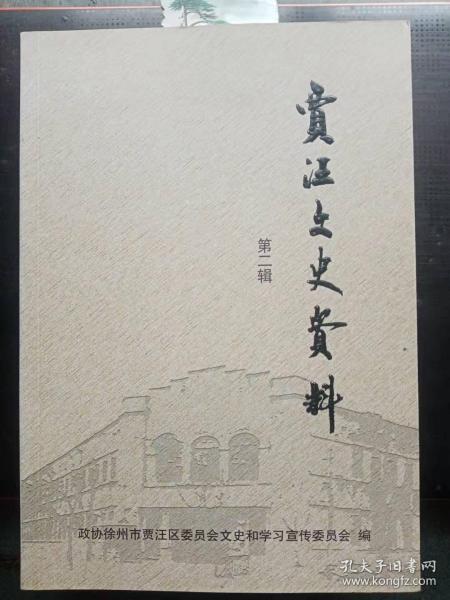 賈汪文史資料
第二辑
政协徐州市贾汪区委员会文史和学习宣传委员会 编
孔夫子旧书网
www.kongfz.com